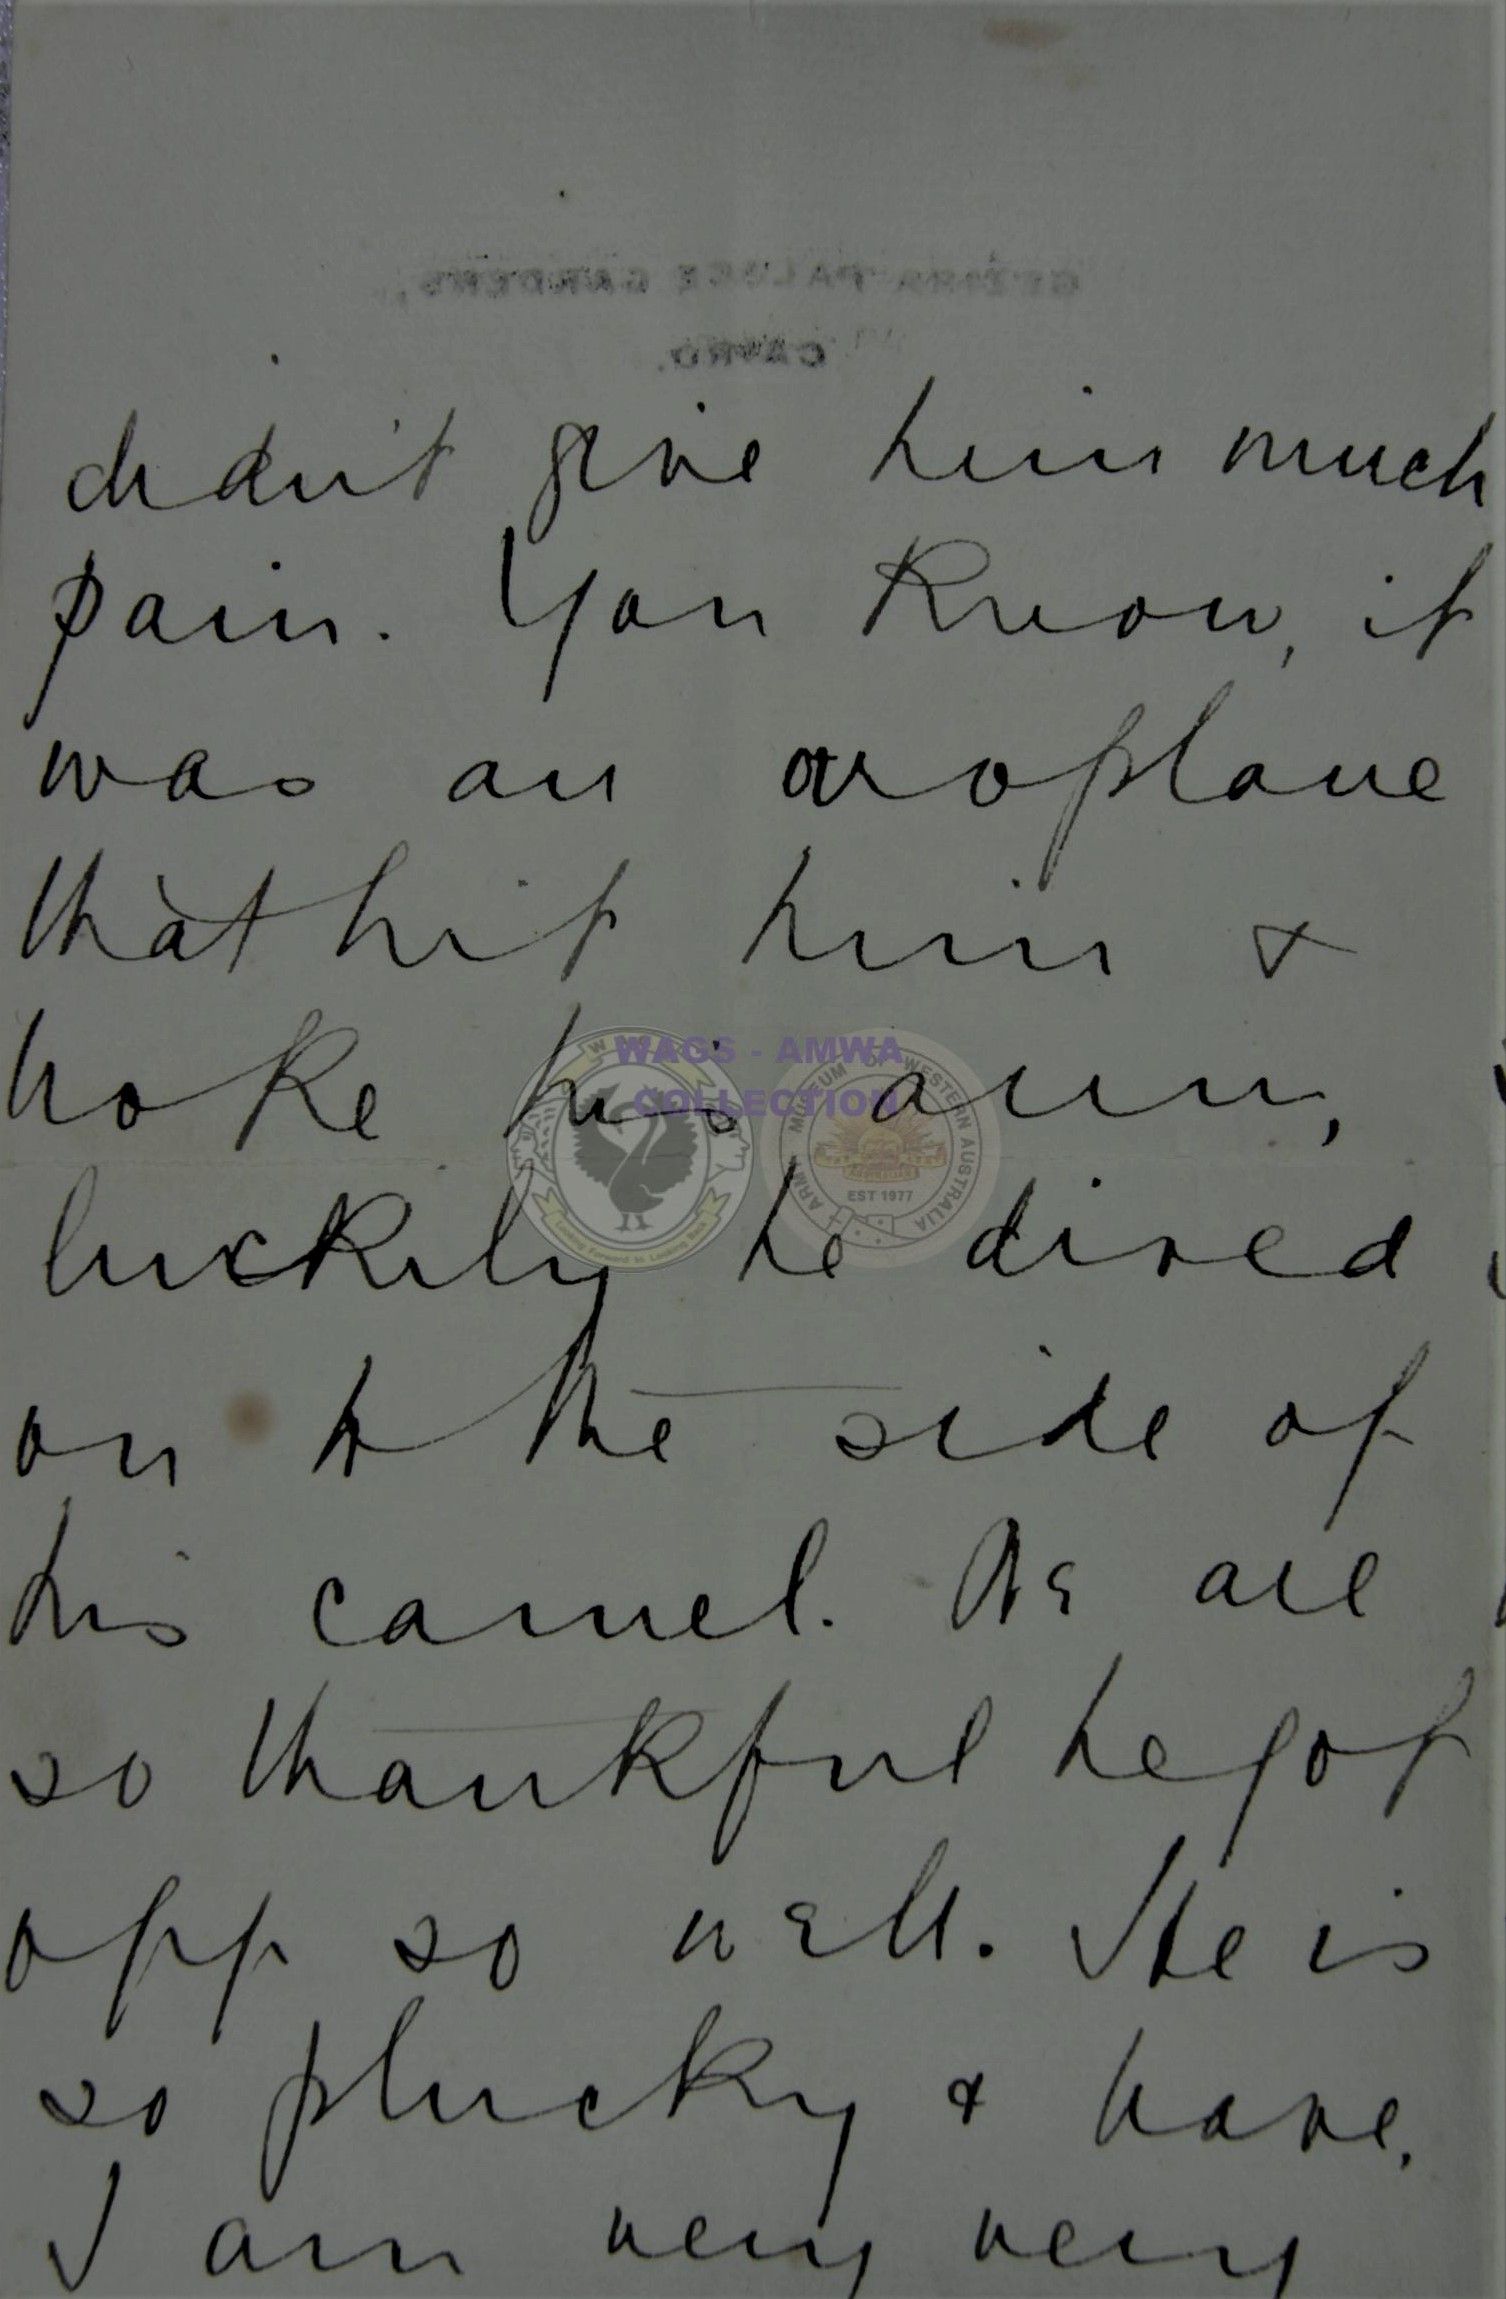 GEZIRA PALACE GARDENS,
CAIRO.
didn't give him much
pain. You know, it
was an aroplane
that hit him &
broke his arm,
luckily he dived
on to the side of
his camel. We are
so thankful he got
off so well. He is
so plucky & brave.
I am very very
WAGS - AMWA
COLLECTION
Looking Forward to Looking Back
ARMY MUSEUM OF WESTERN AUSTRALIA
EST 1977